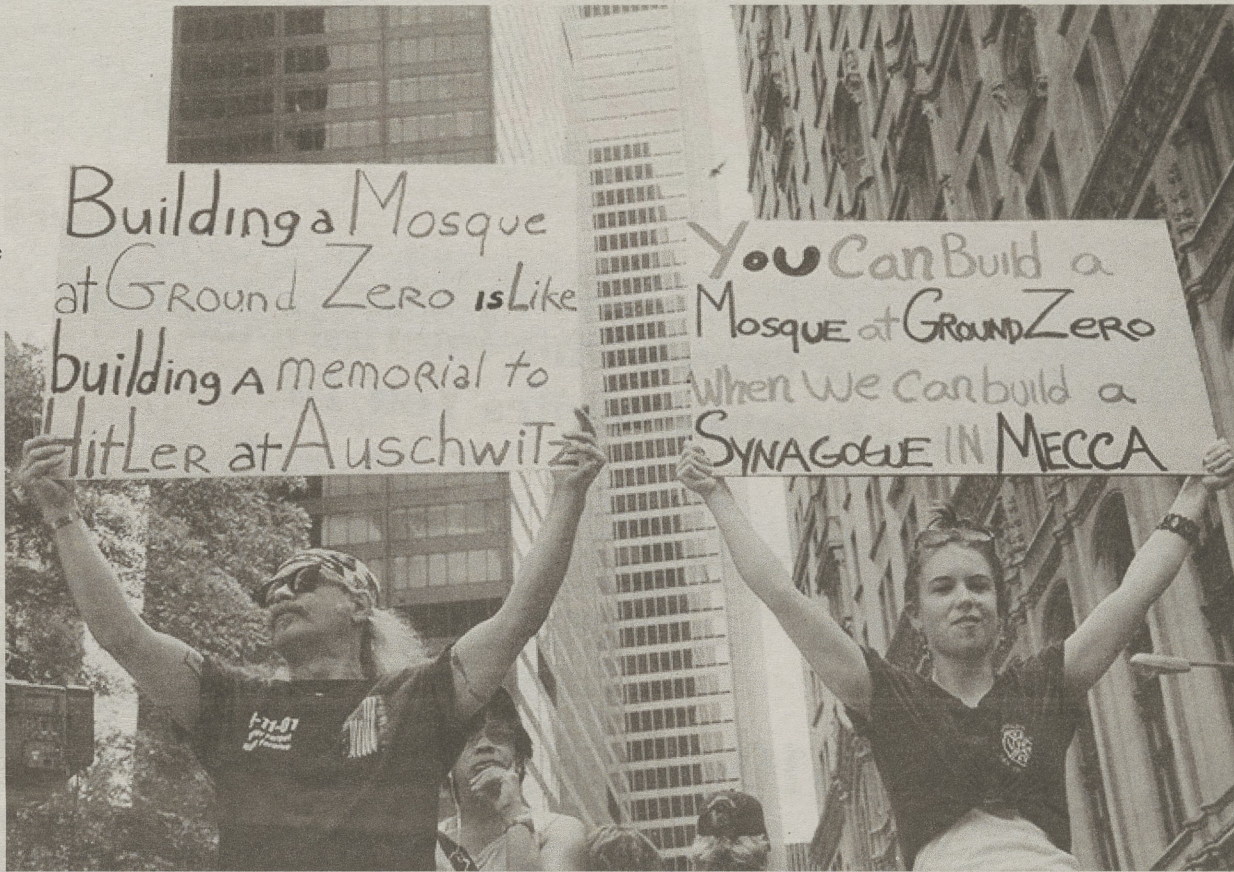 Building a Mosque
at Ground Zero is Like
building A memorial to
Hitler at Auschwitz
You Can Build a
Mosque at Ground Zero
When We Can build a
Synagogue in Mecca